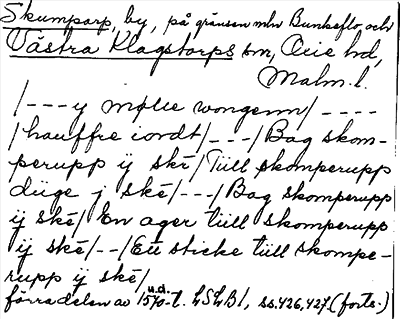 Skumparp, by, på gränsen mln Bunkeflo och
Västra Klagstorps sn, Oxie hd,
Malm. l.
/---y mølle wongenn/----
/hauffre iordt/---/Bag skom-
perupp ij ske/Tiill skomperupp
diige j ske/---/Bag skomperupp
ij ske/En ager tiill skomperupp
ij ske/--/Ett sticke tiill skompe-
rupp ij ske/
u.d.
förra delen av 1570-t. LSLB1, ss. 426, 427 (forts.)